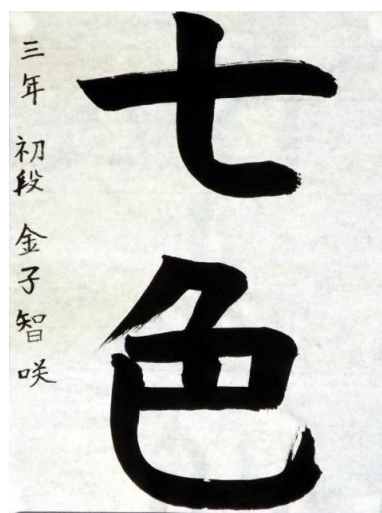 七色
三年 初段 金子智咲